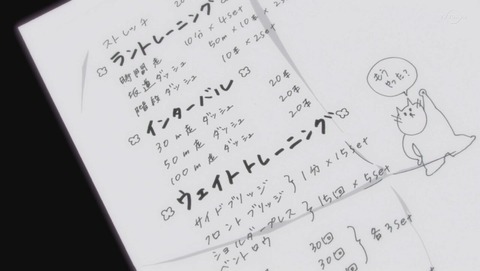 ストレッチ
ラントレーニング
時間走 10分×4set
坂道ダッシュ 50m×10本×2set
階段ダッシュ 10本×2set
インターバル
30m走 ダッシュ 20本
50m走 ダッシュ 20本
100m走 ダッシュ 20本
ウェイトトレーニング
サイドブリッジ
フロントブリッジ 1分×15set
ショルダープレス 15回×5set
ベントロウ 30回
30回 各3set
もう
やった?